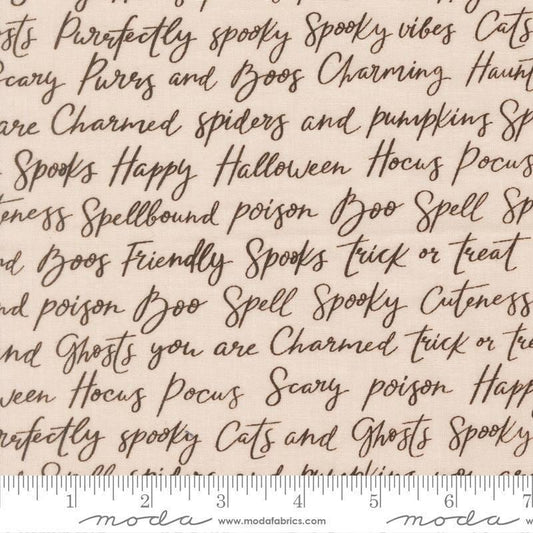 osts Purrfectly spooky Spooky vibes Cats
Scary Purrs and Boos Charming Haunt
are Charmed spiders and pumpkins Sp
Spooks Happy Halloween Hocus Pocus
uteness Spellbound poison Boo Spell Sp
nd Boos Friendly Spooks trick or treat
nd poison Boo Spell Spooky Cuteness
and Ghosts you are Charmed trick or tre
ween Hocus Pocus Scary poison Happ
rrfectly spooky Cats and Ghosts Spooky
Spell spiders and pumpkins you are
1 2 3 4 5 6 7
moda www.modafabrics.com moda